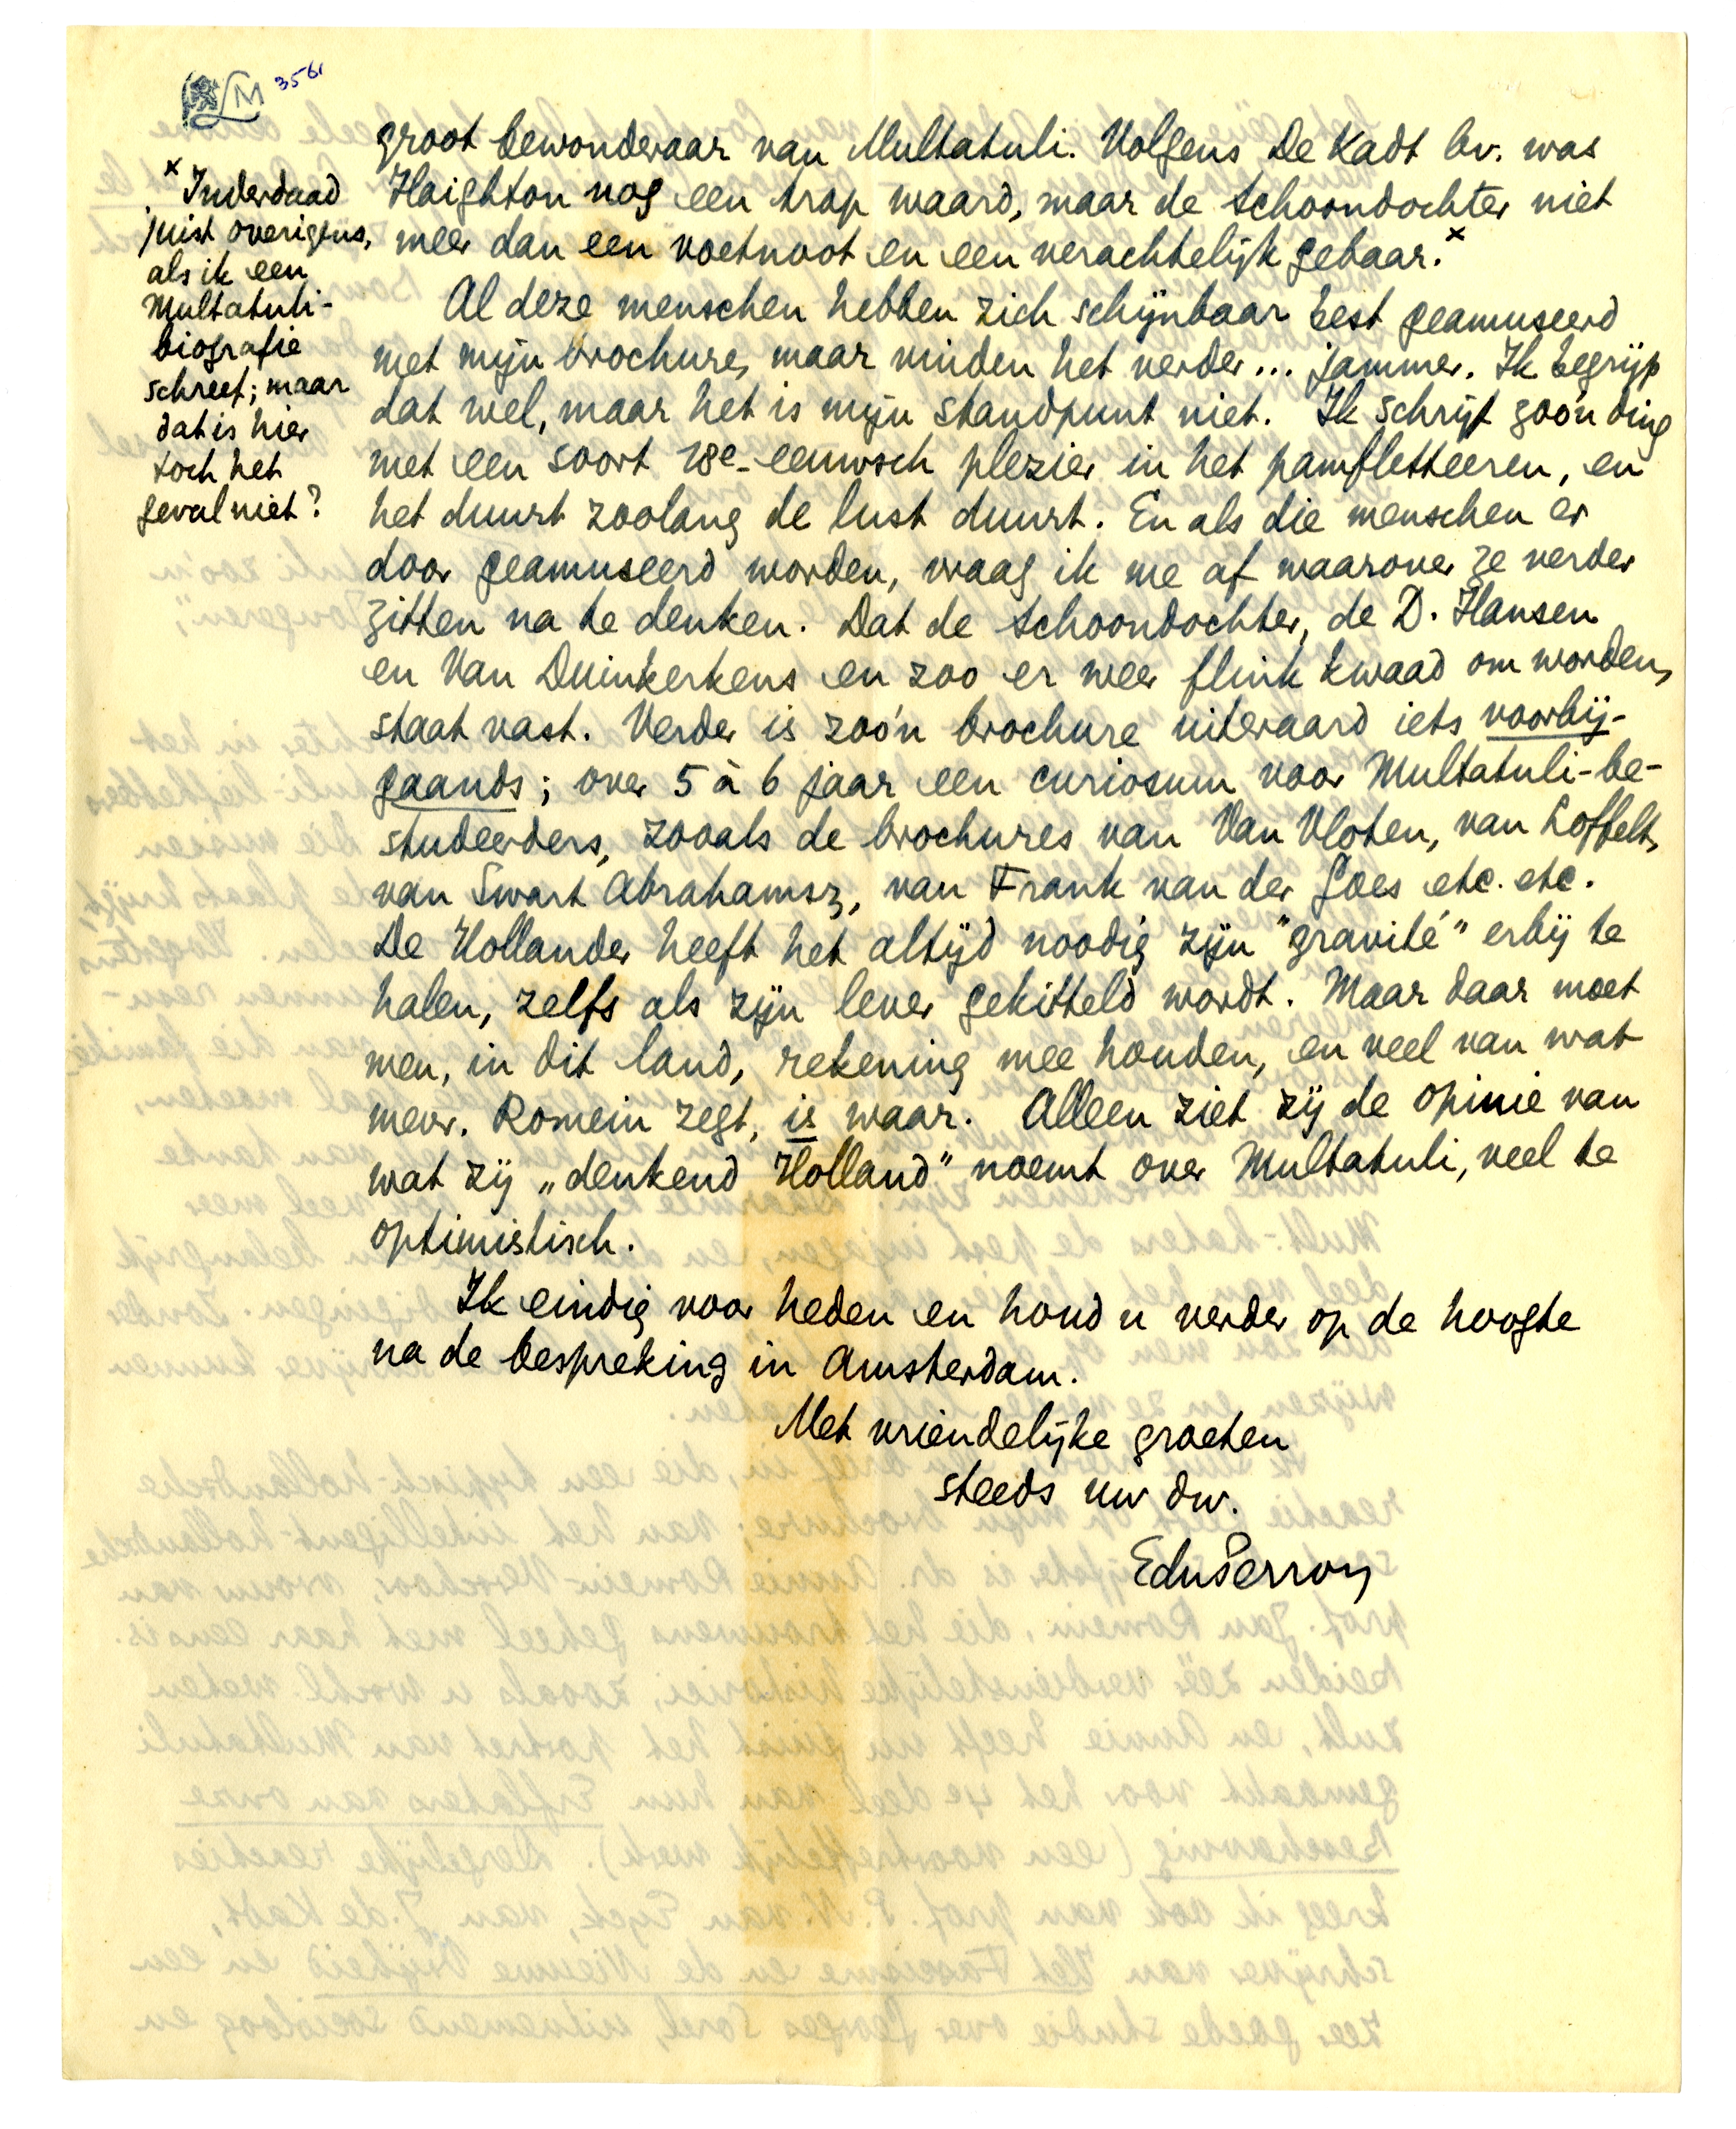 LM 3561
groot bewonderaar van Multatuli. Volgens De Kadt bv. was
Haighton nog een trap waard, maar de Schoondochter niet
meer dan een voetnoot en een verachtelijk gebaar.x
x Inderdaad
juist overigens,
als ik een
Multatuli-
biografie
schreef; maar
dat is hier
toch het
geval niet?
Al deze menschen hebben zich schijnbaar best geamuseerd
met mijn brochure, maar vinden het verder... jammer. Ik begrijp
dat wel, maar het is mijn standpunt niet. Ik schrijf zoo'n ding
met een soort 18e-eeuwsch plezier in het pamfletteeren, en
het duurt zoolang de lust duurt. En als die menschen er
door geamuseerd worden, vraag ik me af waarover ze verder
zitten na te denken. Dat de Schoondochter, de D. Hansen
en Van Duinkerkens en zoo er weer flink kwaad om worden,
staat vast. Verder is zoo'n brochure uiteraard iets voorbij-
gaands; over 5 à 6 jaar een curiosum voor Multatuli-be-
studeerders, zooals de brochures van Van Vloten, van Loffelt,
van Swart Abrahamsz, van Frank van der Goes etc. etc.
De Hollander heeft het altijd noodig zijn "gravité" erbij te
halen, zelfs als zijn lever gekitteld wordt. Maar daar moet
men, in dit land, rekening mee houden, en veel van wat
mevr. Romein zegt, is waar. Alleen ziet zij de opinie van
wat zij „denkend Holland" noemt over Multatuli, veel te
optimistisch.
Ik eindig voor heden en houd u verder op de hoogte
na de bespreking in Amsterdam.
Met vriendelijke groeten
steeds uw dw.
EduPerron